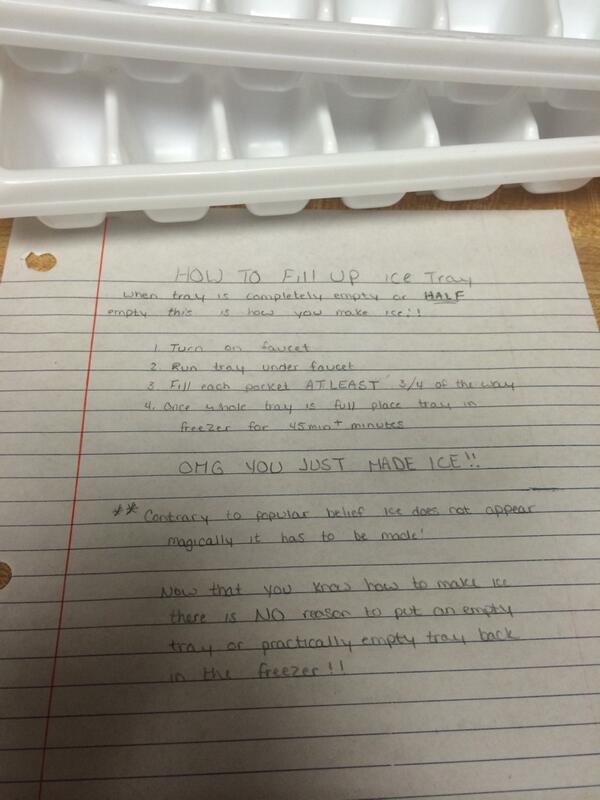 HOW TO Fill UP ice Tray
When tray is completely empty or HALF
empty this is how you make ice!!
1. Turn on faucet
2. Run tray under faucet
3. Fill each pocket AT LEAST 3/4 of the way
4. Once whole tray is full place tray in
freezer for 45min+ minutes
OMG YOU JUST MADE ICE!!
** Contrary to popular belief ice does not appear
magically it has to be made!
Now that you know how to make ice
there is NO reason to put an empty
tray or practically empty tray back
in the freezer!!